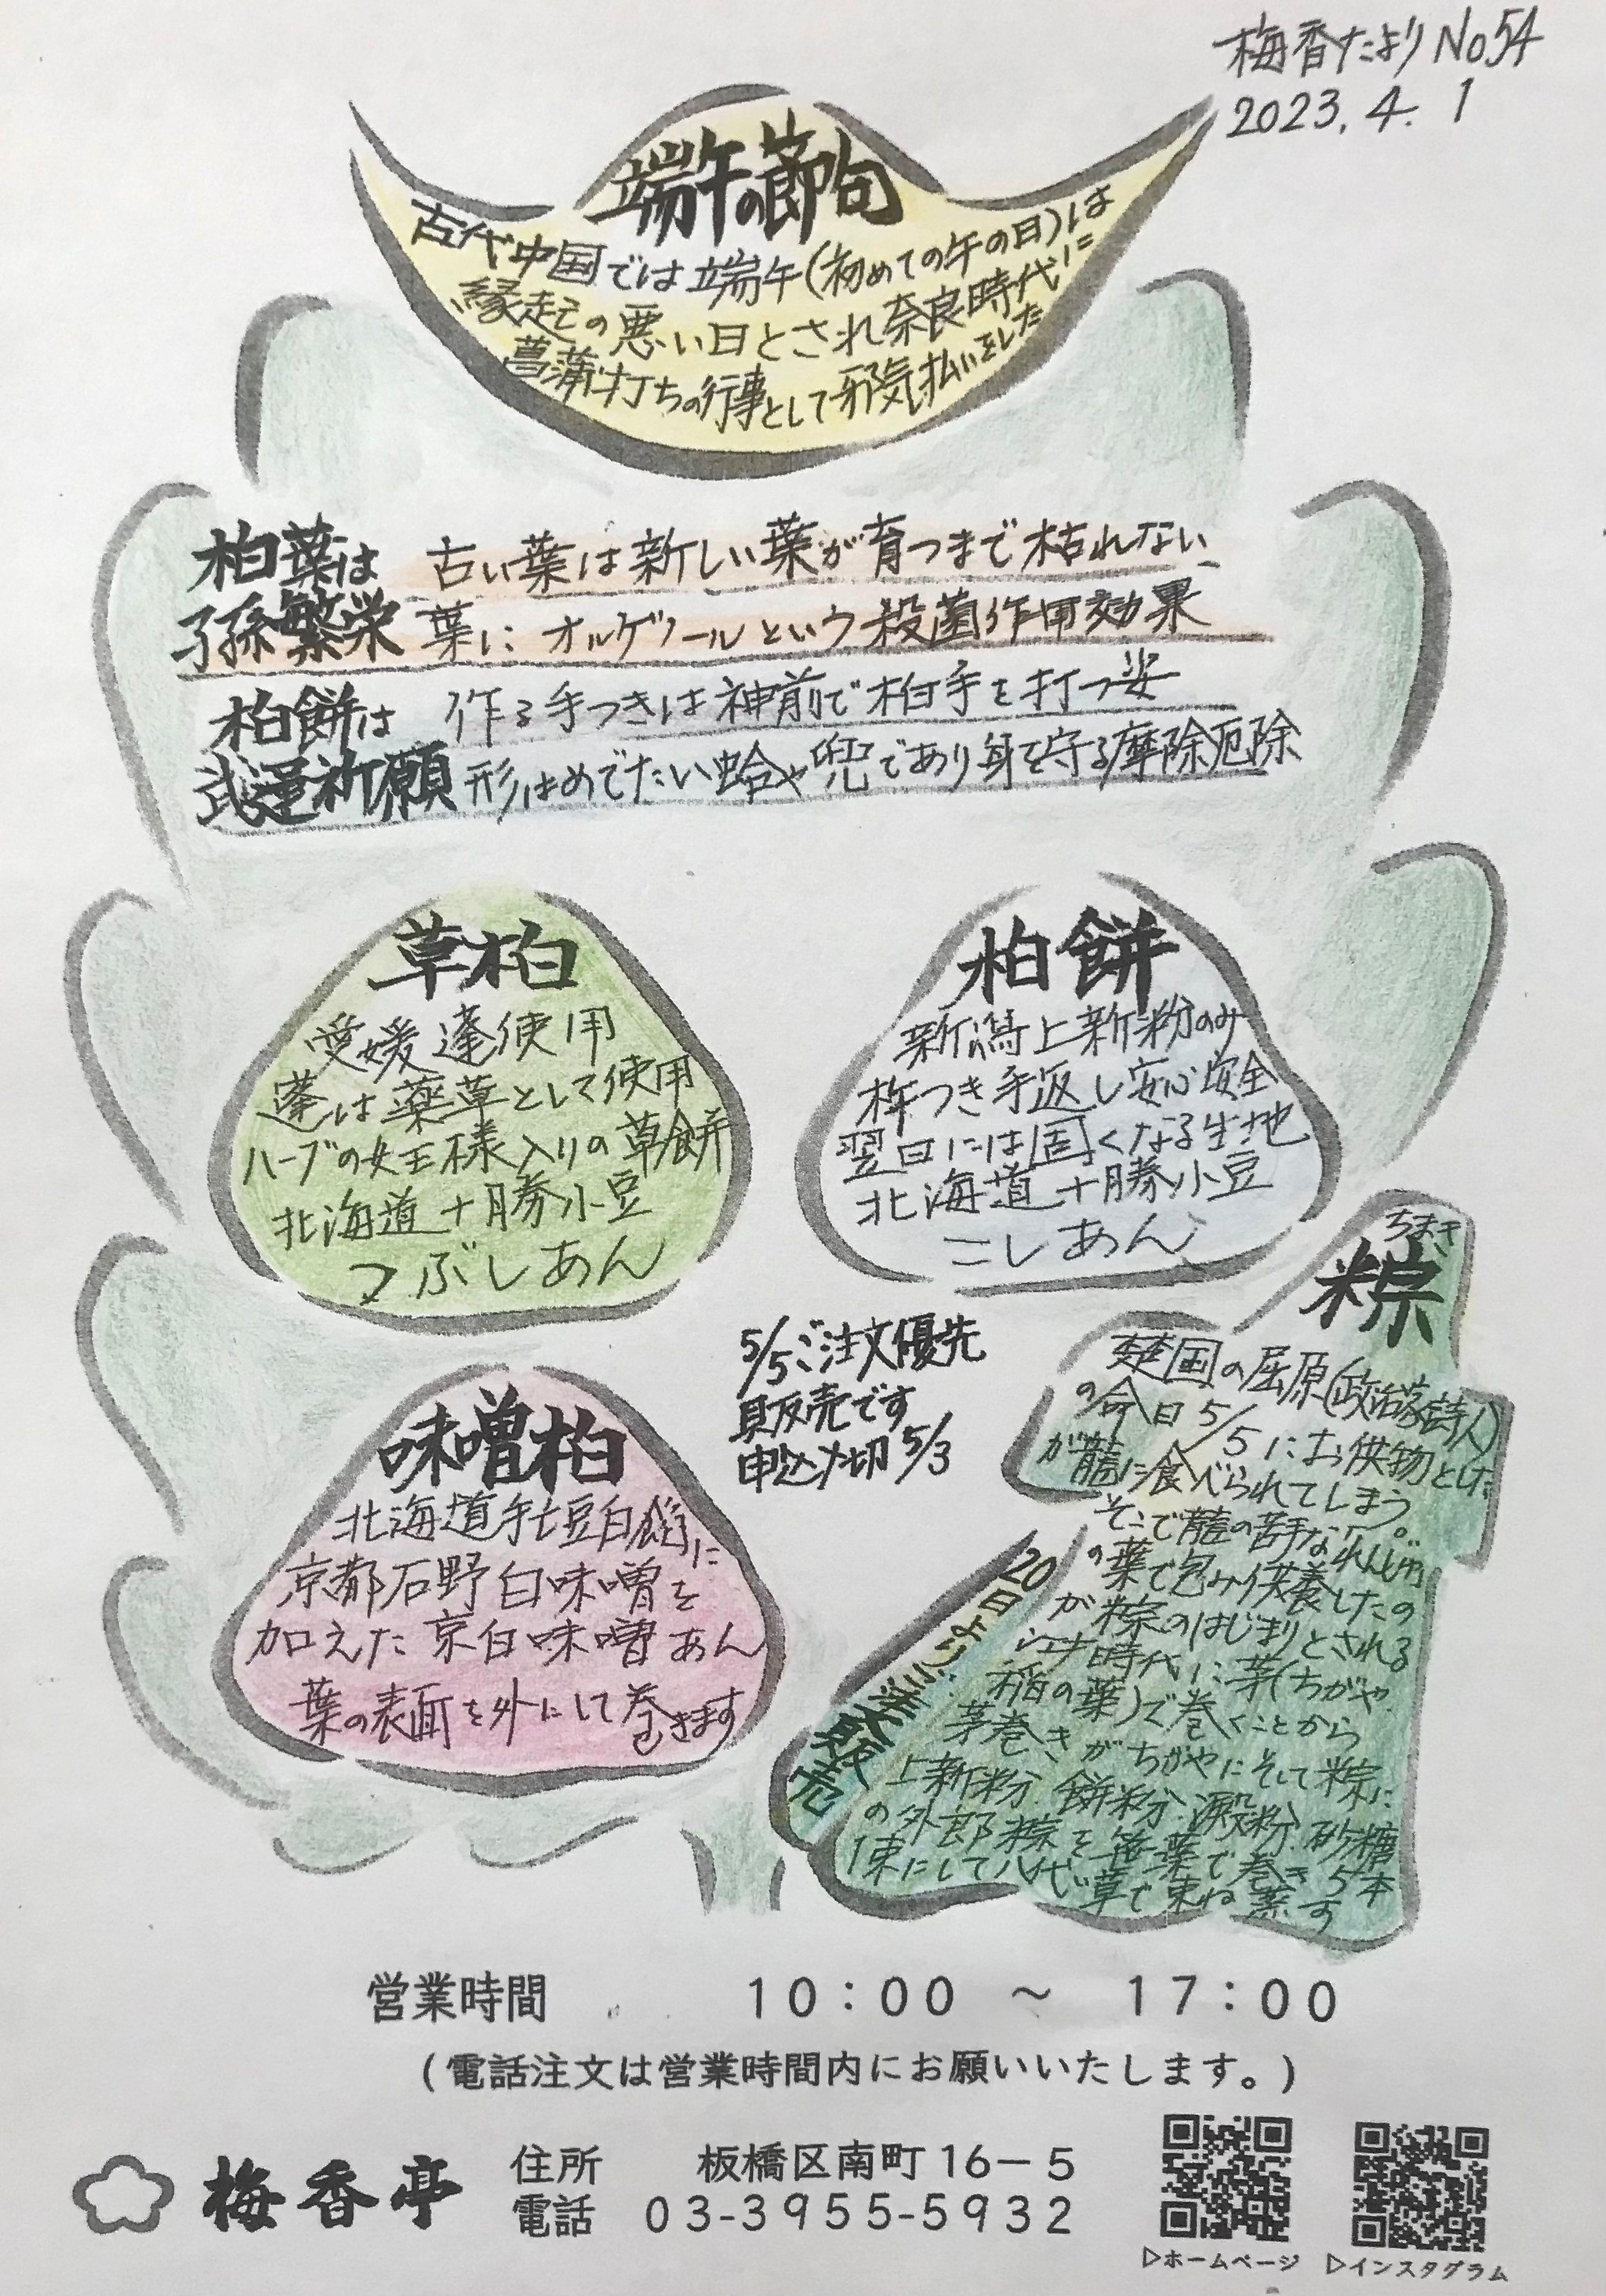 梅香だよりNo54
2023.4.1
端午の節句
古代中国では端午(初めての午の日)は
縁起の悪い日とされ奈良時代に
菖蒲打ちの行事として邪気払いをした
柏葉は 古い葉は新しい葉が育つまで枯れない
子孫繁栄 葉に オルゲノールという殺菌作用効果
柏餅は 作る手つきは神前で柏手を打つ姿
武運祈願 形はめでたい蛤や兜であり身を守る摩除厄除
草柏
愛媛蓬使用
蓬は薬草として使用
ハーブの女王様入りの草餅
北海道十勝小豆
つぶしあん
柏餅
新潟上新粉のみ
杵つき手返し安心安全
翌日には固くなる生地
北海道十勝小豆
こしあん
味噌柏
北海道手亡豆白餡に
京都石野白味噌を
加えた京白味噌あん
葉の表面を外にして巻きます
5/5ご注文優先
販売です
申込〆切5/3
ちまき
粽
楚国の屈原(政治家詩人)
の命日5/5にお供物とした
が龍に食べられてしまう。
そこで龍の苦手なれんじゅ
の葉で包み供養したの
が粽のはじまりとされる
江戸時代に茅(ちがや
稲の葉)で巻くことから
茅巻きがちがやにそして粽に
上新粉.餅粉.澱粉.砂糖
の外郎粽を笹葉で巻き5本
1束にして八代い草で束ね蒸す
20日よりご注文販売
営業時間 10:00 ~ 17:00
(電話注文は営業時間内にお願いいたします。)
梅香亭
住所 板橋区南町16-5
電話 03-3955-5932
▷ホームページ
▷インスタグラム